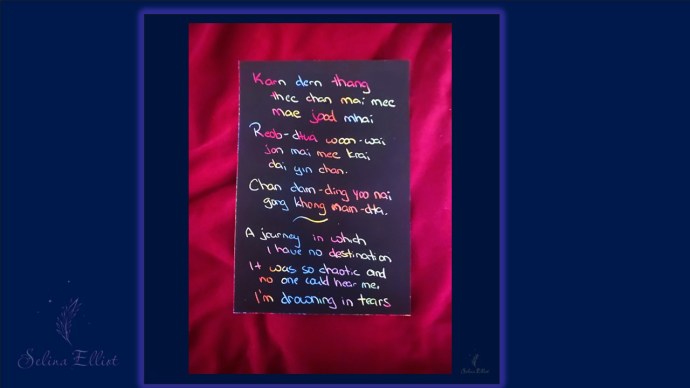 Karn dern thang
thee chan mai mee
mae jood mhai
Reob-dtua woon-wai
jon mai mee krai
dai yin chan.
Chan dam-ding yoo nai
gong khong nam-dta.
A journey in which
I have no destination
It was so chaotic and
no one could hear me,
I'm drowning in tears
Selina Elliot
Selina Elliot